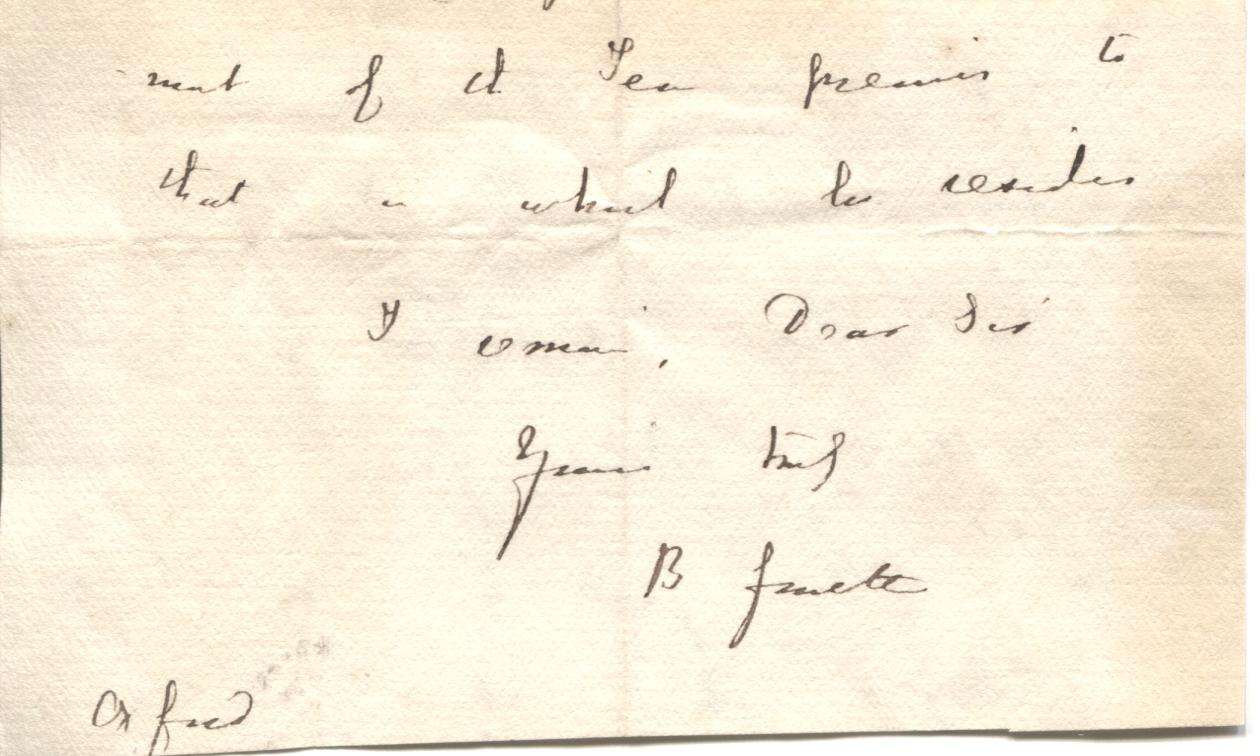 ment of it Ten previous to
that in which he resides
I remain, Dear Sir
Yours truly
B Jowett
Oxford